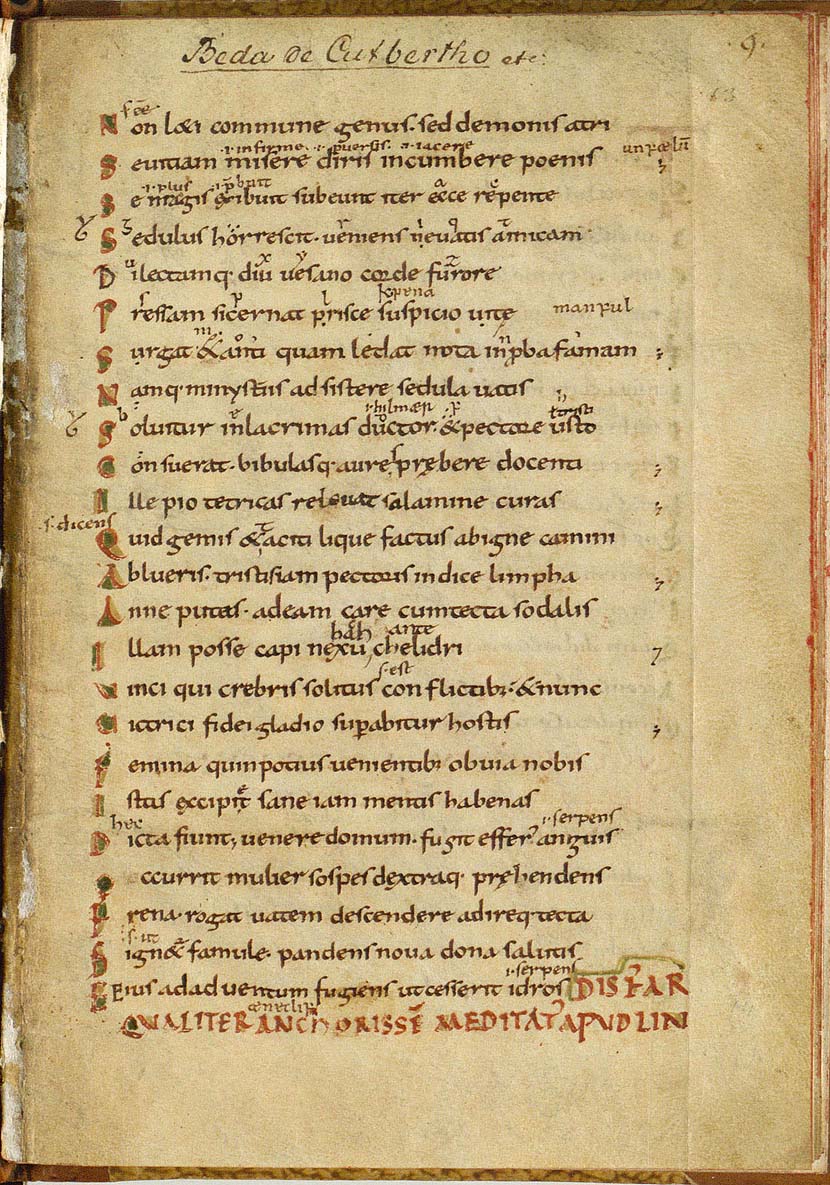 Beda de Cutbertho etc.
9.
Non loeti commune genus. sed demonis atri
.i. infirme .i. puersis .i. iacere
Seuitiam misere diris incumbere poenis
.i. pius
Se magis exibuit subeunt iter ecce repente
Sedulus horrescit. ueniens ne uatis amicam
Dilectamq; diu uesano corde furore
Pressam si cernat prisce suspicio uite manful
Surgat & anti quam ledat nota inproba famam
Namq; minystris ad sistere sedula uatis
Soluitur in lacrimas ductor. & pectore
Con suerat. bibulasq; aures prębere docenti
Ille pio tetricas releuat salamine curas
s. dicens
Quid gemis & taciti lique factus ab igne camini
Ablueris. tristisiam pectoris indice limpha
Anne putas. adeam care cum tecta sodalis
ante
Illam posse capi nexu, chelidri
s. est
Vinci qui crebris solitus con flictib; & nunc
Victrici fidei gladio supabitur hostis
Femina quin potius uenientib; obuia nobis
Istis excipiet sane iam mentis habenas
hec .i. serpens
Dicta fiunt; uenere domum. fugit effer anguis
Occurrit mulier sospes dextraq; prehendens
Frena. rogat uatem descendere adireq; tecta
s. ut
Sign& famule. pandens noua dona salutis
.i. serpens
Eius ad aduentum fugiens ut cesserit idros DISPAR
QUALITER ANCHORISSE MEDITAT APUD LIN